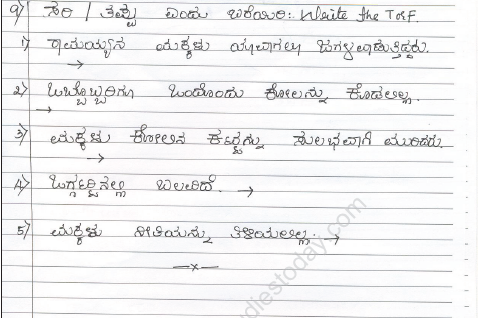 9) ಸರಿ / ತಪ್ಪು ಎಂದು ಬರೆಯಿರಿ: Write the T or F.
1) ರಾಮಯ್ಯನ ಮಕ್ಕಳು ಯಾವಾಗಲೂ ಜಗಳವಾಡುತ್ತಿದ್ದರು.
→
2) ಒಬ್ಬೊಬ್ಬರಿಗೂ ಒಂದೊಂದು ಕೋಲನ್ನು ಕೊಡಲಿಲ್ಲ.
→
3) ಮಕ್ಕಳು ಕೋಲಿನ ಕಟ್ಟನ್ನು ಸುಲಭವಾಗಿ ಮುರಿದರು.
→
4) ಒಗ್ಗಟ್ಟಿನಲ್ಲಿ ಬಲವಿದೆ. →
5) ಮಕ್ಕಳು ನೀತಿಯನ್ನು ಕಲಿಯಲಿಲ್ಲ. →
—x—
diestoday.com